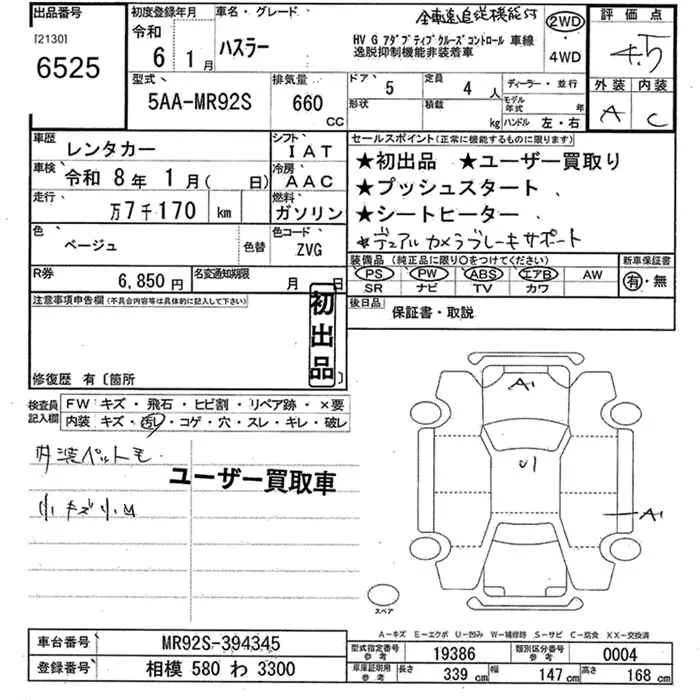 出品番号
[2130]
6525
初度登録年月
令和
6 1月
車名・グレード
ハスラー
全車速追従機能付
HV G アダプティブクルーズコントロール 車線
逸脱抑制機能非装着車
2WD
・
4WD
評価点
4.5
外装 内装
A C
型式
5AA-MR92S
排気量
660
CC
ドア
5
定員
4 人
形状
積載
kg
ディーラー・並行
モデル年式 年
ハンドル 左・右
車歴
レンタカー
シフト
IAT
車検
令和 8年 1月( 日)
冷房
AAC
走行
万7千170 km
燃料
ガソリン
色
ベージュ
色替
色コード
ZVG
R券
6,850 円
名変通知期限
月 日
セールスポイント(正常に機能するものに限ります)
★初出品 ★ユーザー買取り
★プッシュスタート
★シートヒーター
★デュアルカメラブレーキサポート
装備品(純正品に限り○をつけてください)
PS PW ABS エアB AW
SR ナビ TV カワ
新車保証書
有・無
後日品
保証書・取説
注意事項申告欄(不具合内容等は具体的に記入して下さい)
初出品
修復歴 有〔箇所 〕
検査員記入欄
FW キズ・飛石・ヒビ割・リペア跡・×要
内装 キズ・汚レ・コゲ・穴・スレ・キレ・破レ
内装ペットモ
ユーザー買取車
小キズ小凹
A1
U1
A1
スペア
A−キズ E−エクボ U−凹み W−補修跡 S−サビ C−腐食 XX−交換済
車台番号
MR92S-394345
登録番号
相模 580 わ 3300
型式指定番号
参考
19386
類別区分番号
参考
0004
車庫証明用
参考
長さ
339 cm
幅
147 cm
高さ
168 cm